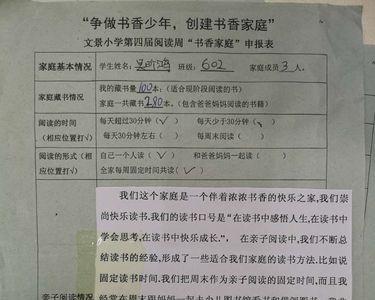 “争做书香少年，创建书香家庭”
文景小学第四届阅读周“书香家庭”申报表
家庭基本情况 学生姓名： 班级：602 家庭成员3人。
家庭藏书情况 我的藏书量100本：（适合现阶段阅读的书）
家庭一共藏书280本。（包含爸爸妈妈阅读的书籍）
阅读的时间 每天超过30分钟（✓） 每天少于30分钟（
（相应位置打√） 每天30分钟左右（ ） 每周末阅读（ ）
阅读的形式（相应位置打√） 自己一个人读（✓） 和爸爸妈妈一起读（ ）
全家每周固定时间共读（✓）
我们这个家庭是一个伴着浓浓书香的快乐之家,我们崇
尚快乐读书,我们的读书口号是“在读书中感悟人生,在读书中
学会思考,在读书中快乐成长.”， 在亲子阅读中,我们不断总
结读书的经验,形成了一些适合我们家庭的读书方法.比如说
固定读书时间.我们把周末作为亲子阅读的固定时间,而且我
亲子阅读情况